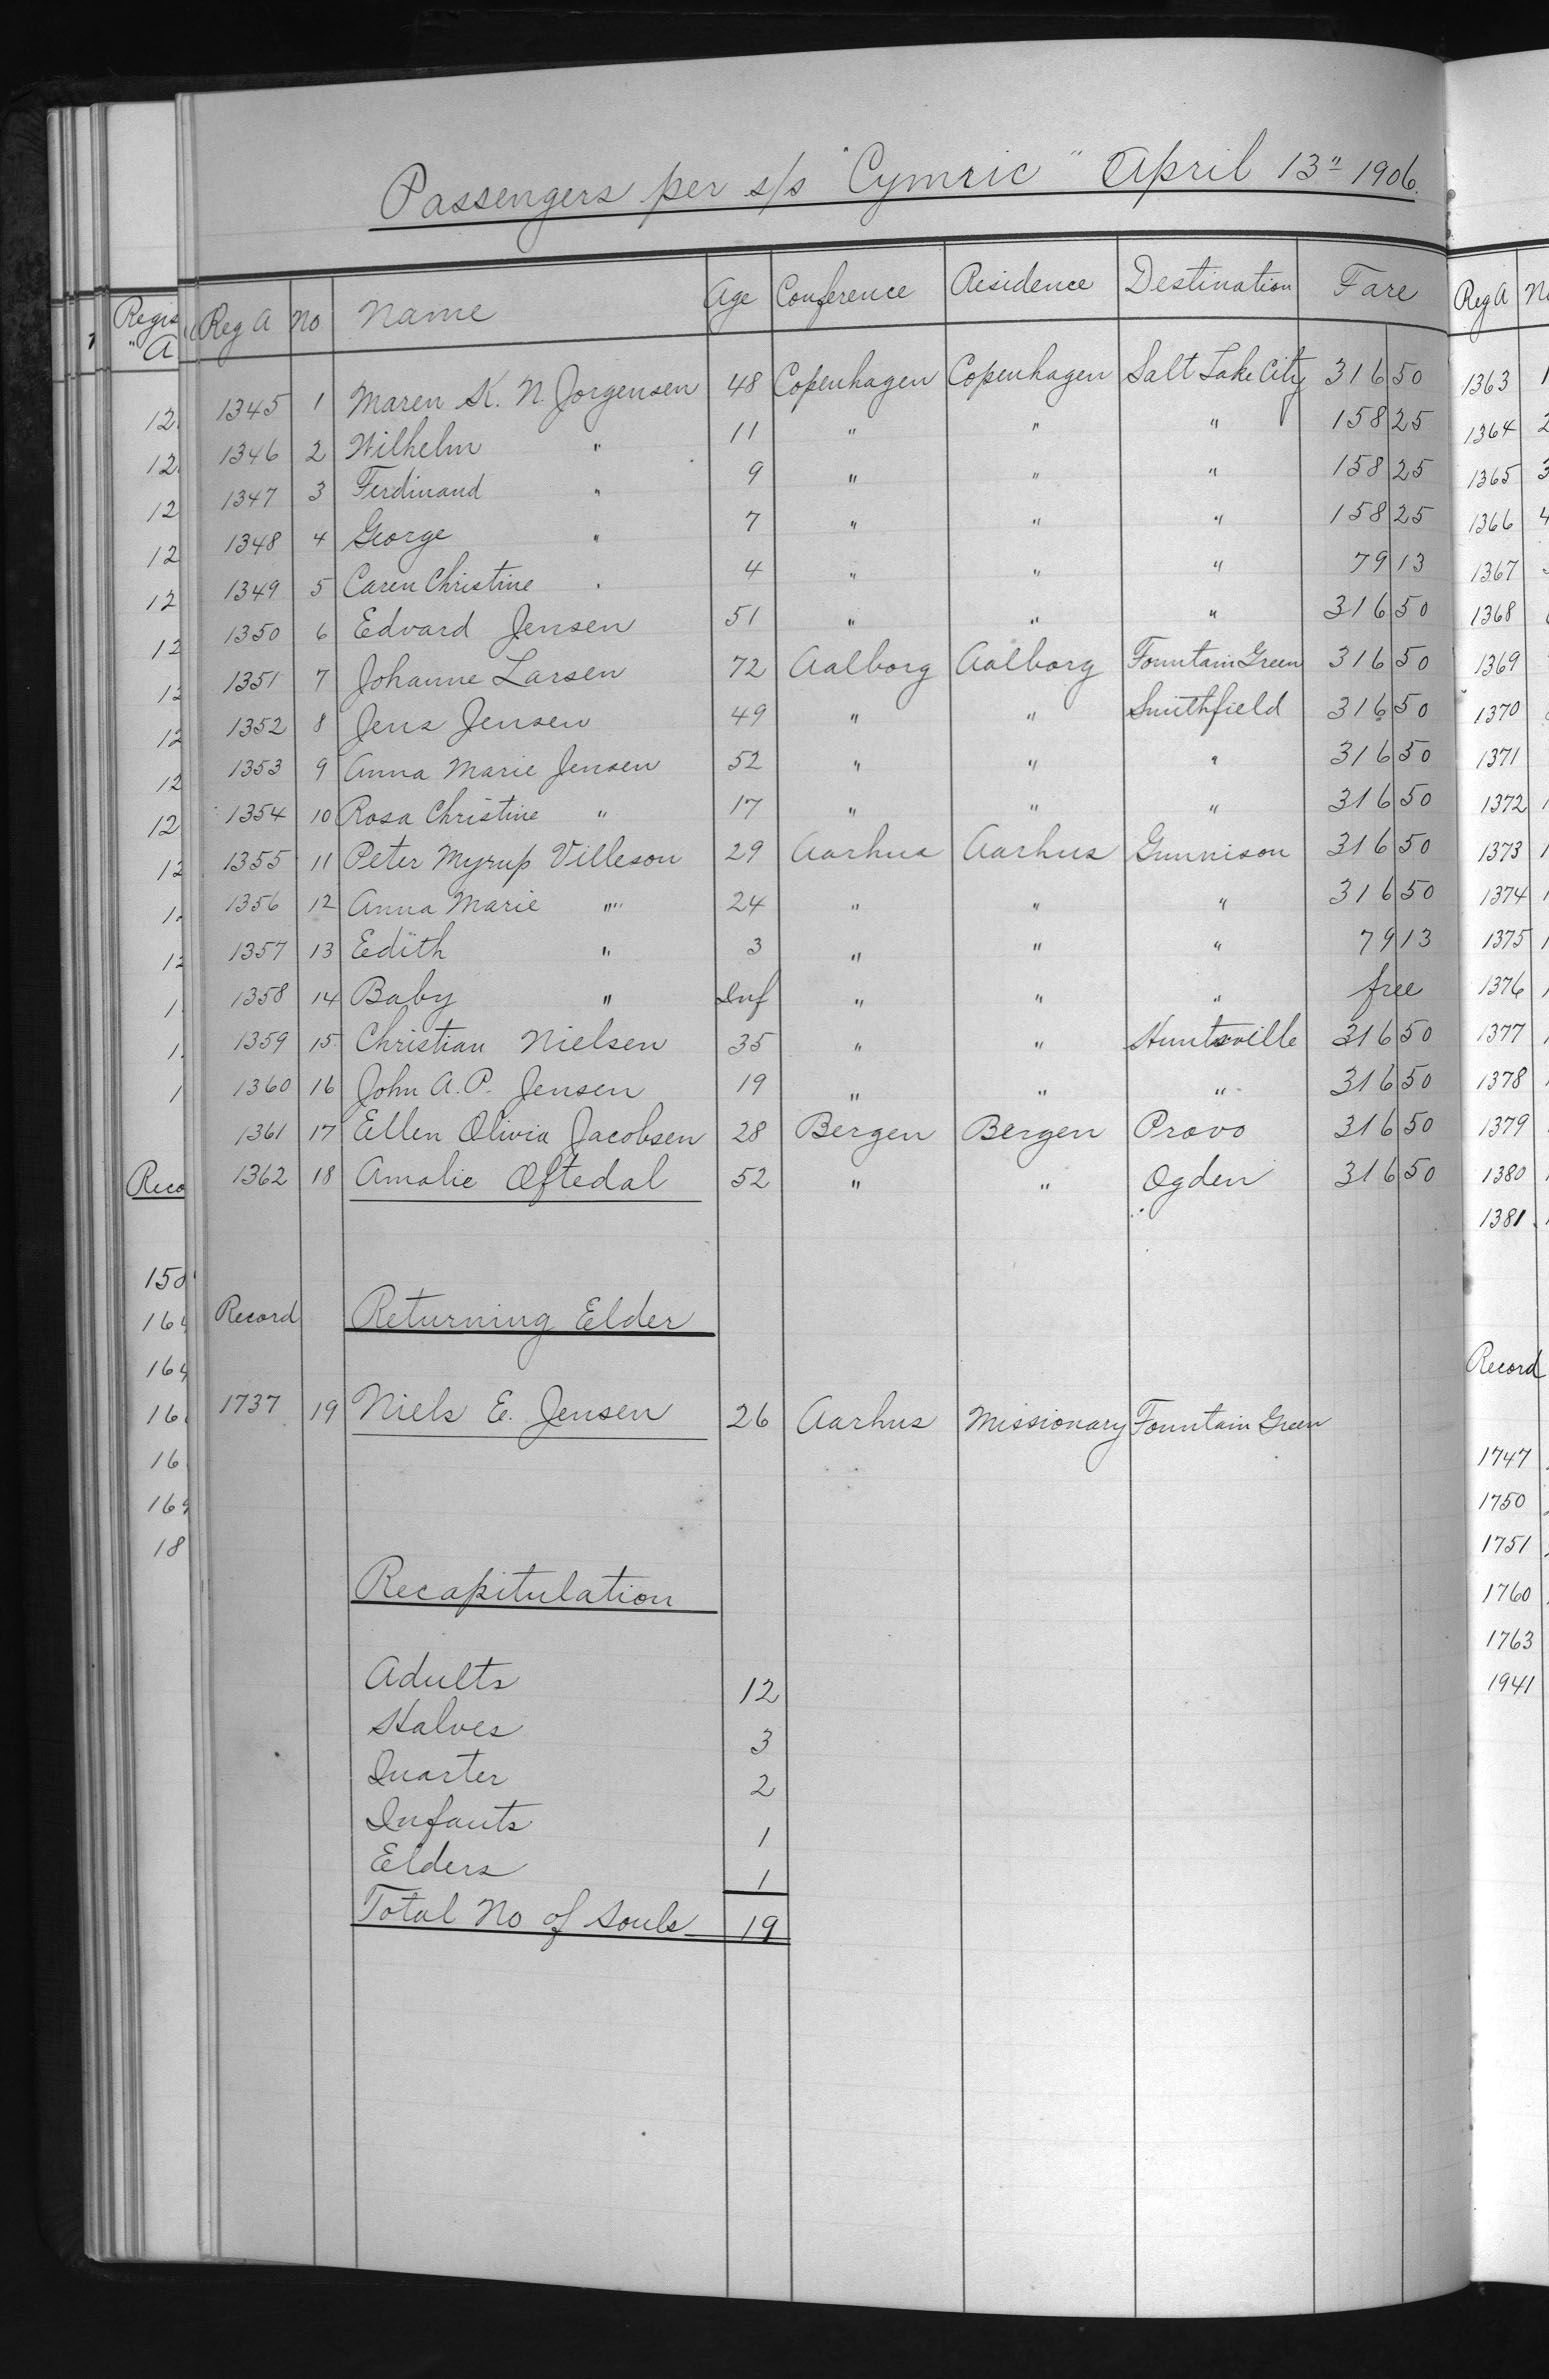 Passengers per s/s "Cymric" April 13" 1906.
Reg A No Name Age Conference Residence Destination Fare
1345 1 Maren K. N. Jorgensen 48 Copenhagen Copenhagen Salt Lake City 316 50
1346 2 Wilhelm " 11 " " " 158 25
1347 3 Ferdinand " 9 " " " 158 25
1348 4 George " 7 " " " 158 25
1349 5 Caren Christine " 4 " " " 79 13
1350 6 Edvard Jensen 51 " " " 316 50
1351 7 Johanne Larsen 72 Aalborg Aalborg Fountain Green 316 50
1352 8 Jens Jensen 49 " " Smithfield 316 50
1353 9 Anna Marie Jensen 52 " " " 316 50
1354 10 Rosa Christine " 17 " " " 316 50
1355 11 Peter Myrup Villeson 29 Aarhus Aarhus Gunnison 316 50
1356 12 Anna Marie " 24 " " " 316 50
1357 13 Edith " 3 " " " 79 13
1358 14 Baby " Inf " " " free
1359 15 Christian Nielsen 35 " " Huntsville 316 50
1360 16 John A. P. Jensen 19 " " " 316 50
1361 17 Ellen Olivia Jacobsen 28 Bergen Bergen Provo 316 50
1362 18 Amalie Oftedal 52 " " Ogden 316 50
Record Returning Elder
1737 19 Niels E. Jensen 26 Aarhus Missionary Fountain Green
Recapitulation
Adults 12
Halves 3
Quarter 2
Infants 1
Elders 1
Total No of Souls 19
Reg A
1363
1364
1365
1366
1367
1368
1369
1370
1371
1372
1373
1374
1375
1376
1377
1378
1379
1380
1381
Record
1747
1750
1751
1760
1763
1941